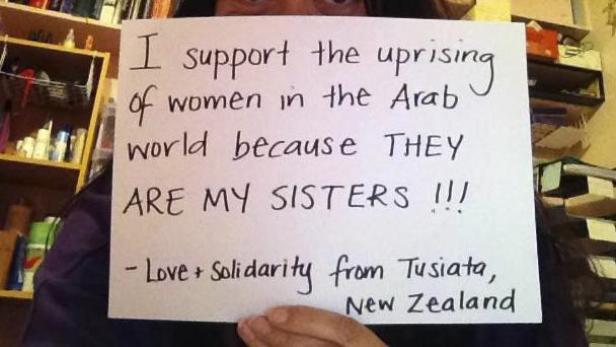 I support the uprising
of women in the Arab
world because THEY
ARE MY SISTERS !!!
- Love + Solidarity from Tusiata,
New Zealand